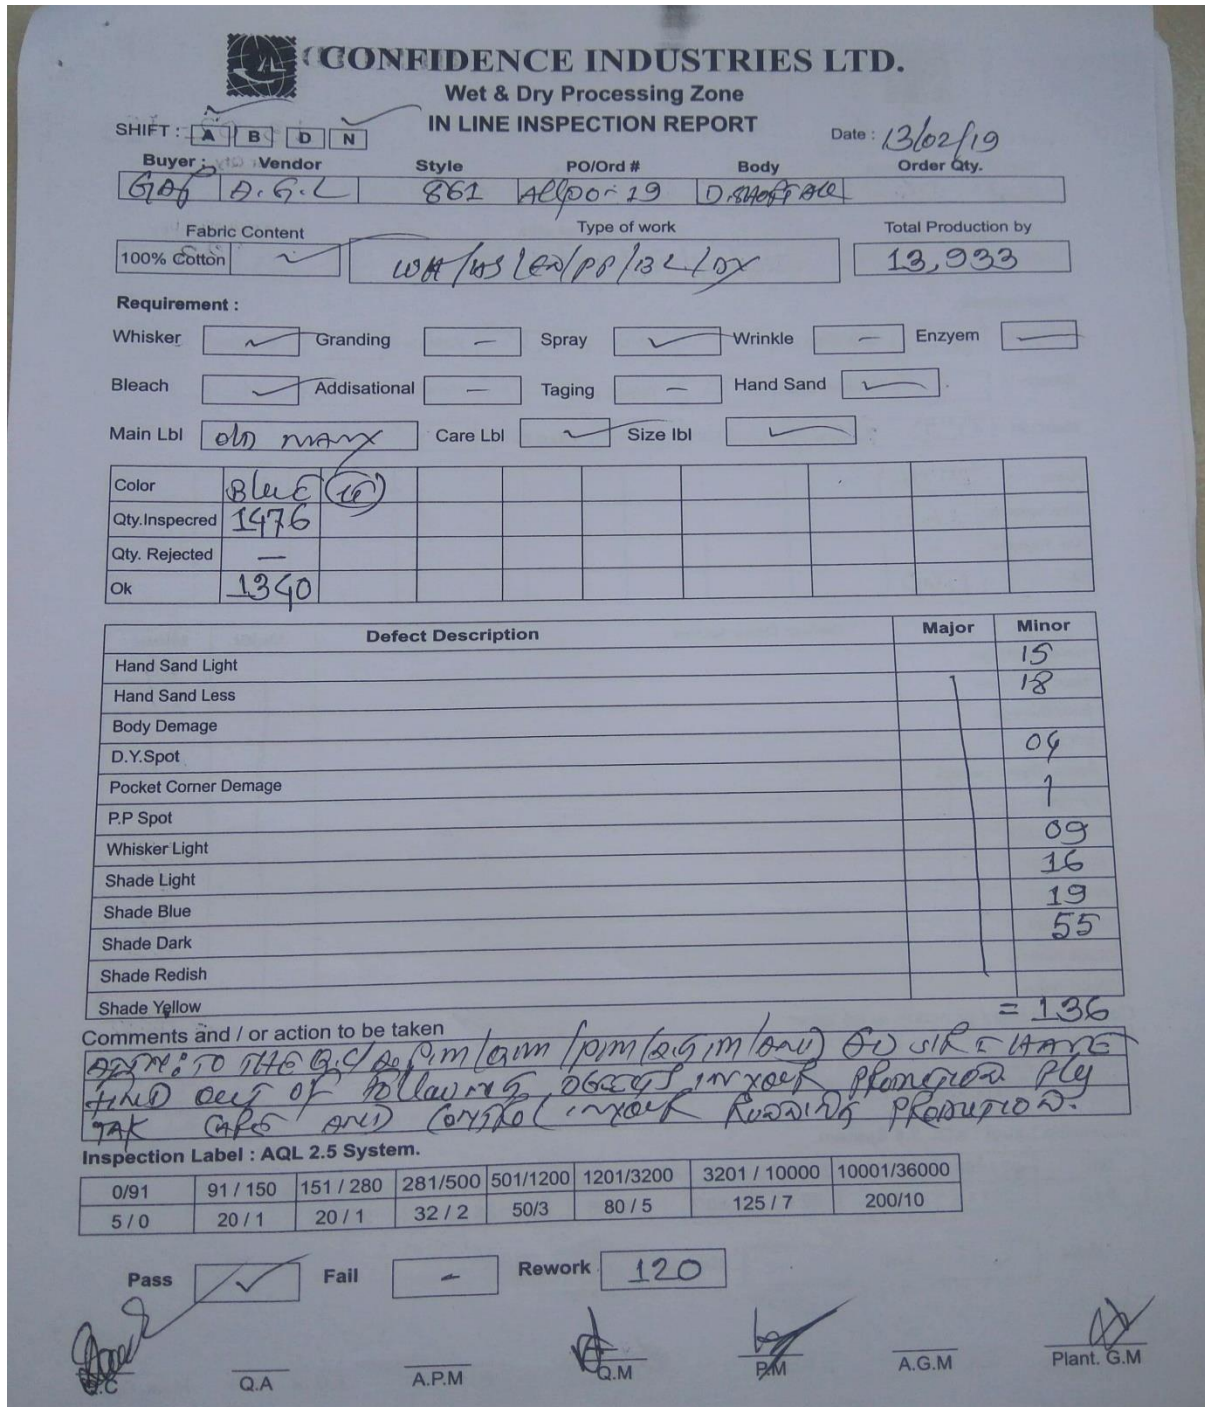 CONFIDENCE INDUSTRIES LTD.
Wet & Dry Processing Zone
IN LINE INSPECTION REPORT
SHIFT : A B D N
Date : 13/02/19
Buyer : Vendor Style PO/Ord # Body Order Qty.
GAP A.G.L 861 19
Fabric Content Type of work Total Production by
100% Cotton 13,933
Requirement :
Whisker Granding – Spray ✓ Wrinkle – Enzyem
Bleach ✓ Addisational – Taging – Hand Sand ✓
Main Lbl old Care Lbl ✓ Size lbl ✓
Color Blue
Qty.Inspecred 1476
Qty. Rejected —
Ok 1340
Defect Description Major Minor
Hand Sand Light 15
Hand Sand Less 18
Body Demage
D.Y.Spot 04
Pocket Corner Demage
P.P Spot
Whisker Light 09
Shade Light 16
Shade Blue 19
Shade Dark 55
Shade Redish
Shade Yellow = 136
Comments and / or action to be taken
TO THE SIR I HAVE
FIND out of following
TAK CARE AND CONTROL
Inspection Label : AQL 2.5 System.
0/91 91 / 150 151 / 280 281/500 501/1200 1201/3200 3201 / 10000 10001/36000
5 / 0 20 / 1 20 / 1 32 / 2 50/3 80 / 5 125 / 7 200/10
Pass ✓ Fail – Rework 120
Q.A A.P.M Q.M P.M A.G.M Plant. G.M